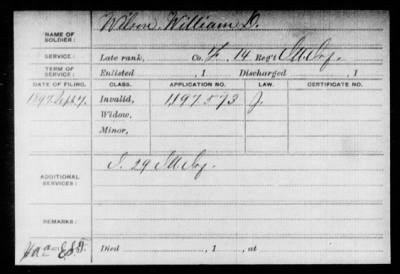 NAME OF SOLDIER: Wilson, William D.
SERVICE: Late rank, Co. F, 14 Reg't Ill Inf.
TERM OF SERVICE: Enlisted , 1 Discharged , 1
DATE OF FILING. CLASS. APPLICATION NO. LAW. CERTIFICATE NO.
1897 Sept 7. Invalid, 1197573 J.
Widow,
Minor,
ADDITIONAL SERVICES: I. 29 Ill Inf.
REMARKS:
Died , 1 , at